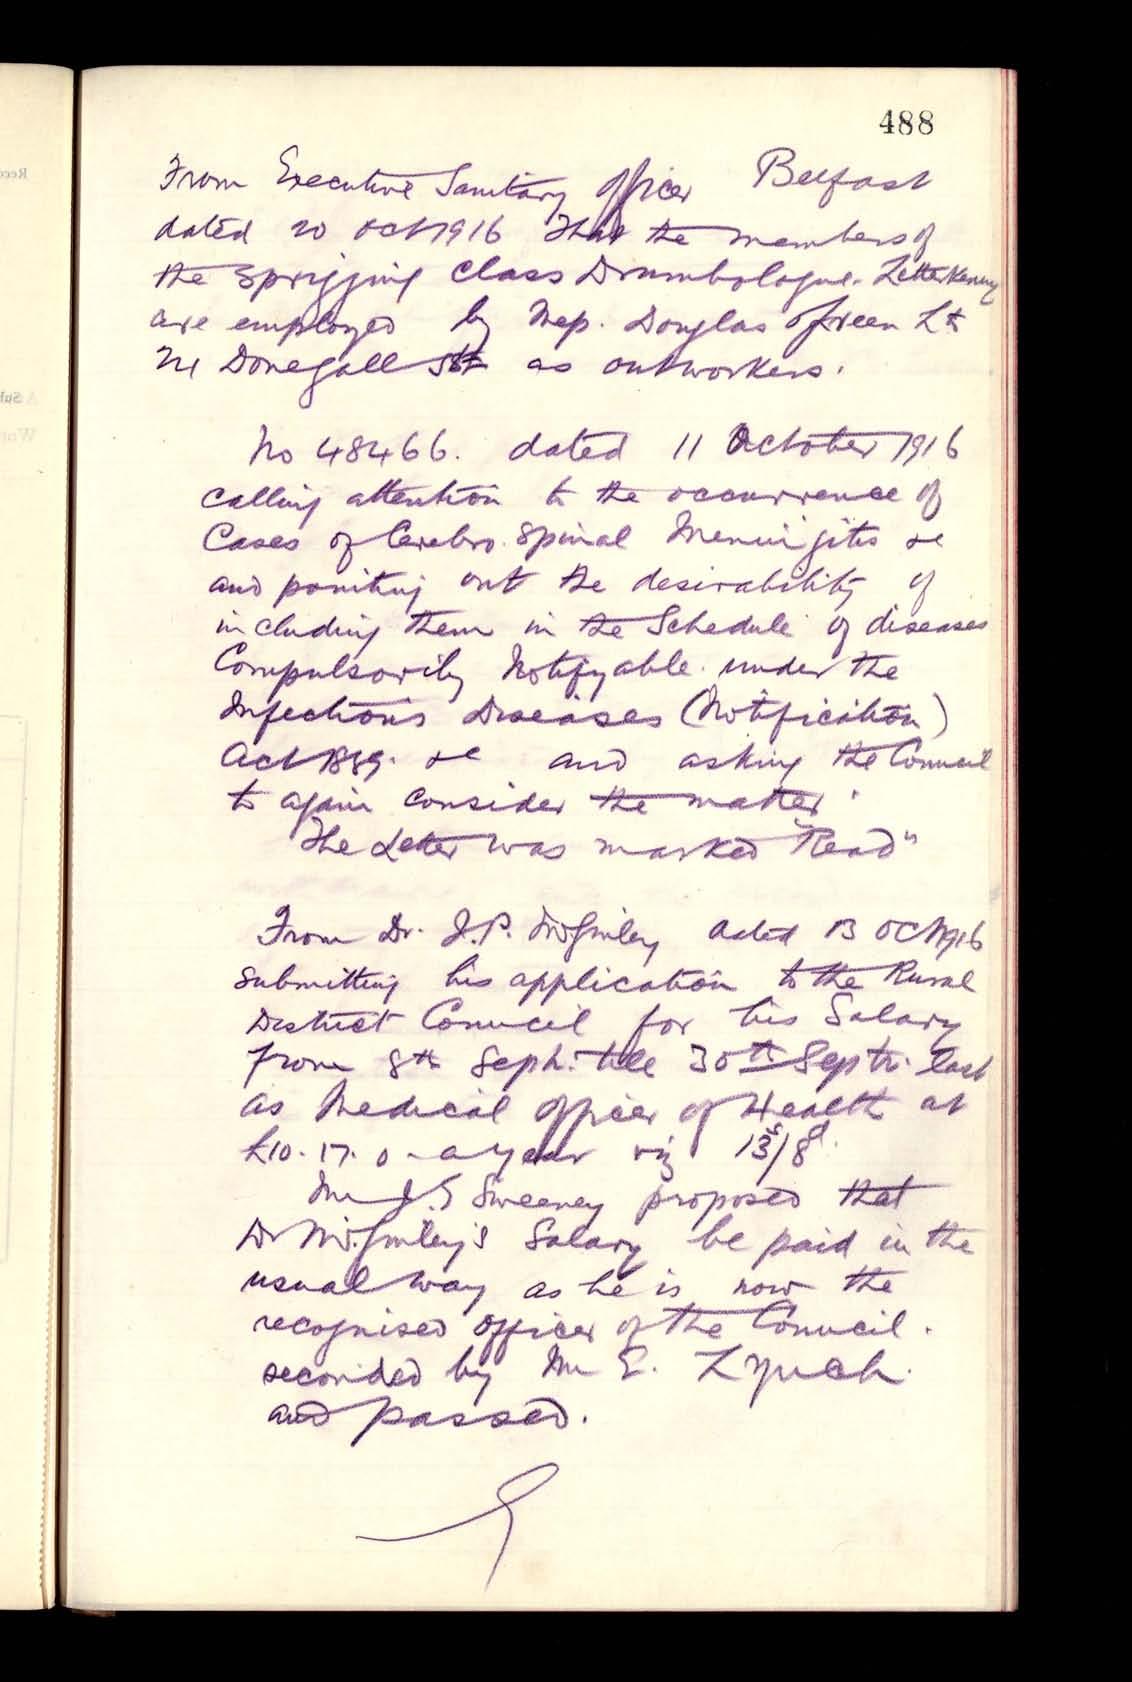 488
From Executive Sanitary Officer Belfast
dated 20 Oct 1916 That the members of
the Sprigging Class Drumbologue. Letterkenny
are employed by Mess. Douglas & Green Ld
Donegall St as outworkers.
No 48466. dated 11 October 1916
calling attention to the occurrence of
Cases of Cerebro. Spinal Meningitis &c
and pointing out the desirability of
including them in the Schedule of diseases
Compulsorily Notifyable under the
Infectious Diseases (Notification)
Act 1889. &c and asking the Council
to again consider the matter.
The Letter was marked "Read"
From Dr. J.P. McGinley dated 13 Oct 1916
submitting his application to the Rural
District Council for his Salary
from 8th Sept. till 30th Septr. last
as Medical Officer of Health at
£10. 17. 0 a year viz 13s/8d.
Mr J.G Sweeney proposed that
Dr McGinley's Salary be paid in the
usual way as he is now the
recognised officer of the Council.
seconded by Mr E. Lynch.
and passed.